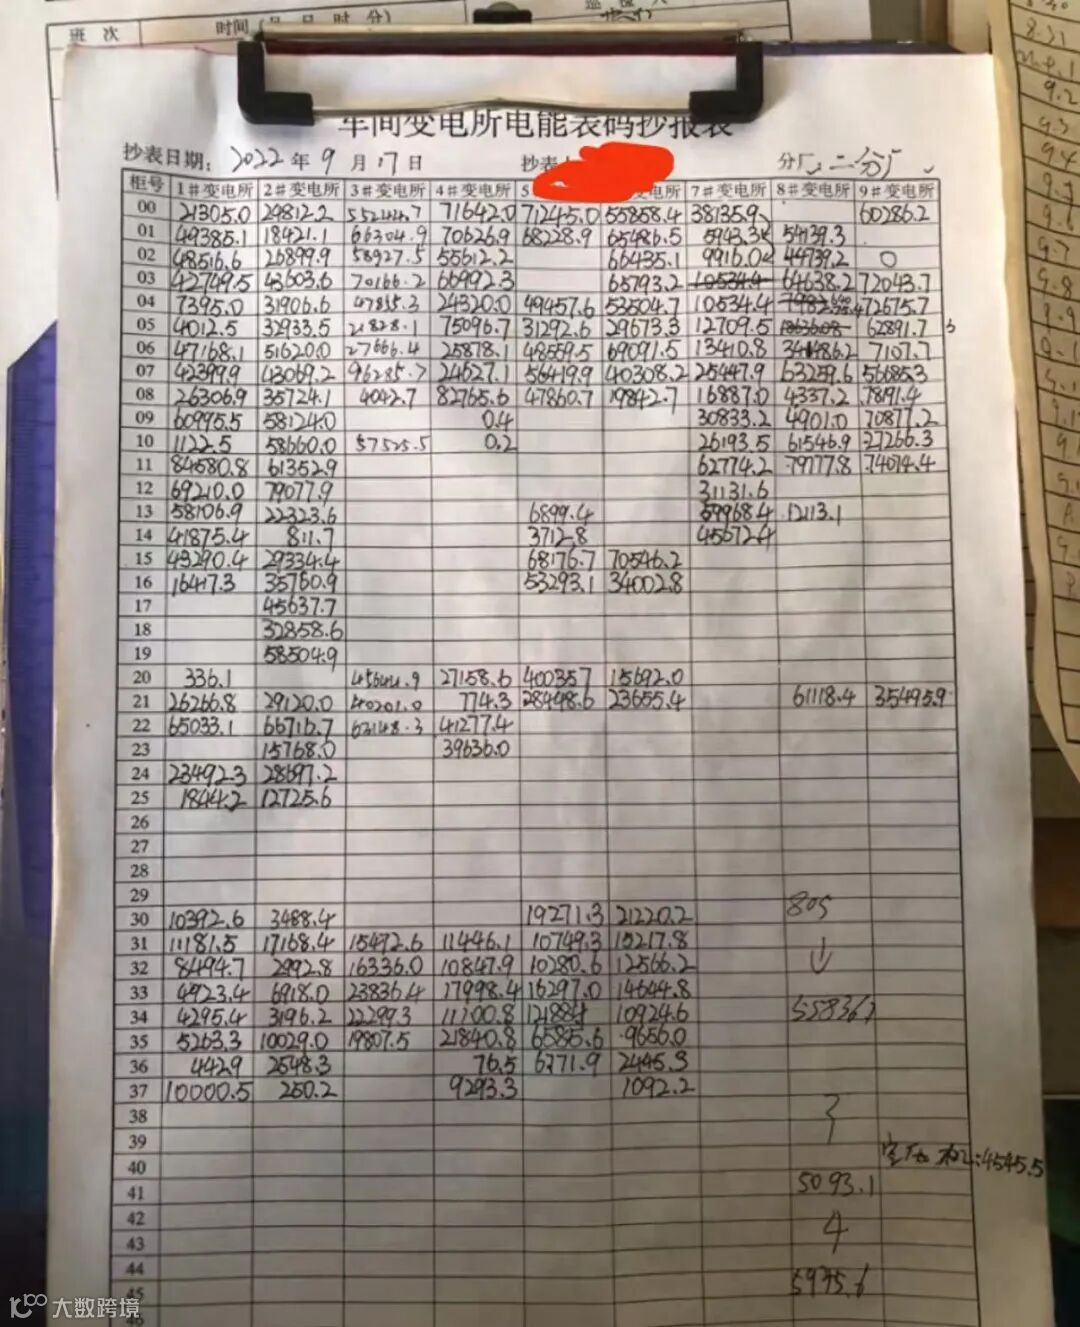 班 次 时间(月 日 时 分)
车间变电所电能表码抄报表
抄表日期: 2022 年 9 月 17 日 抄表 分厂: 二分厂
柜号 1#变电所 2#变电所 3#变电所 4#变电所 5 变电所 7#变电所 8#变电所 9#变电所
00 21305.0 29812.2 55244.7 71642.0 71245.0 55858.4 38135.9 60286.2
01 49385.1 18421.1 66304.9 70626.9 68228.9 65486.5 5943.3 54139.3
02 48516.6 26899.9 58927.5 55612.2 66435.1 9916.0 44739.2 0
03 42749.5 43603.6 70166.2 66992.3 65793.2 10534.4 64638.2 72043.7
04 7395.0 31906.6 47815.3 24320.0 49457.6 53504.7 10534.4 72675.7
05 4012.5 32933.5 21828.1 75096.7 31292.6 29673.3 12709.5 62891.7
06 47168.1 51620.0 27666.4 25878.1 48559.5 69091.5 13410.8 7107.7
07 42399.9 43069.2 96285.7 24627.1 56419.9 40308.2 25447.9 63259.6 56685.3
08 26306.9 35724.1 4042.7 82765.6 47860.7 19842.7 16887.0 4337.2 7891.4
09 60995.5 58124.0 0.4 30833.2 4901.0 70877.2
10 1122.5 58660.0 57525.5 0.2 26193.5 61546.9 27266.3
11 84580.8 61352.9 62774.2 79777.8 74074.4
12 69210.0 79077.9 31131.6
13 58106.9 22323.6 6899.4 59968.4 12113.1
14 41875.4 811.7 3712.8 45672.4
15 43290.4 29334.4 68176.7 70546.2
16 16417.3 35760.9 53293.1 34002.8
17 45637.7
18 32858.6
19 58504.9
20 336.1 45644.9 27158.6 40035.7 15692.0
21 26266.8 29120.0 40201.0 774.3 28448.6 23655.4 61118.4 35495.9
22 65033.1 66716.7 63148.3 41277.4
23 15768.0 39636.0
24 23492.3 28697.2
25 1844.2 12725.6
26
27
28
29
30 10392.6 3488.4 19271.3 21220.2 805
31 11181.5 17168.4 15472.6 11446.1 10749.3 15217.8
32 8494.7 2992.8 16336.0 10847.9 10280.6 12566.2
33 4923.4 6918.0 23836.4 17998.4 16297.0 14644.8
34 4295.4 3196.2 22299.3 11700.8 10924.6
35 5263.3 10029.0 19807.5 21840.8 6585.6 9656.0
36 442.9 2548.3 76.5 6771.9 2445.3
37 10000.5 250.2 9293.3 1092.2
38
39
40 空压机:4545.5
41 5093.1
42
43 4
44
45 5975.6
46
大数跨境